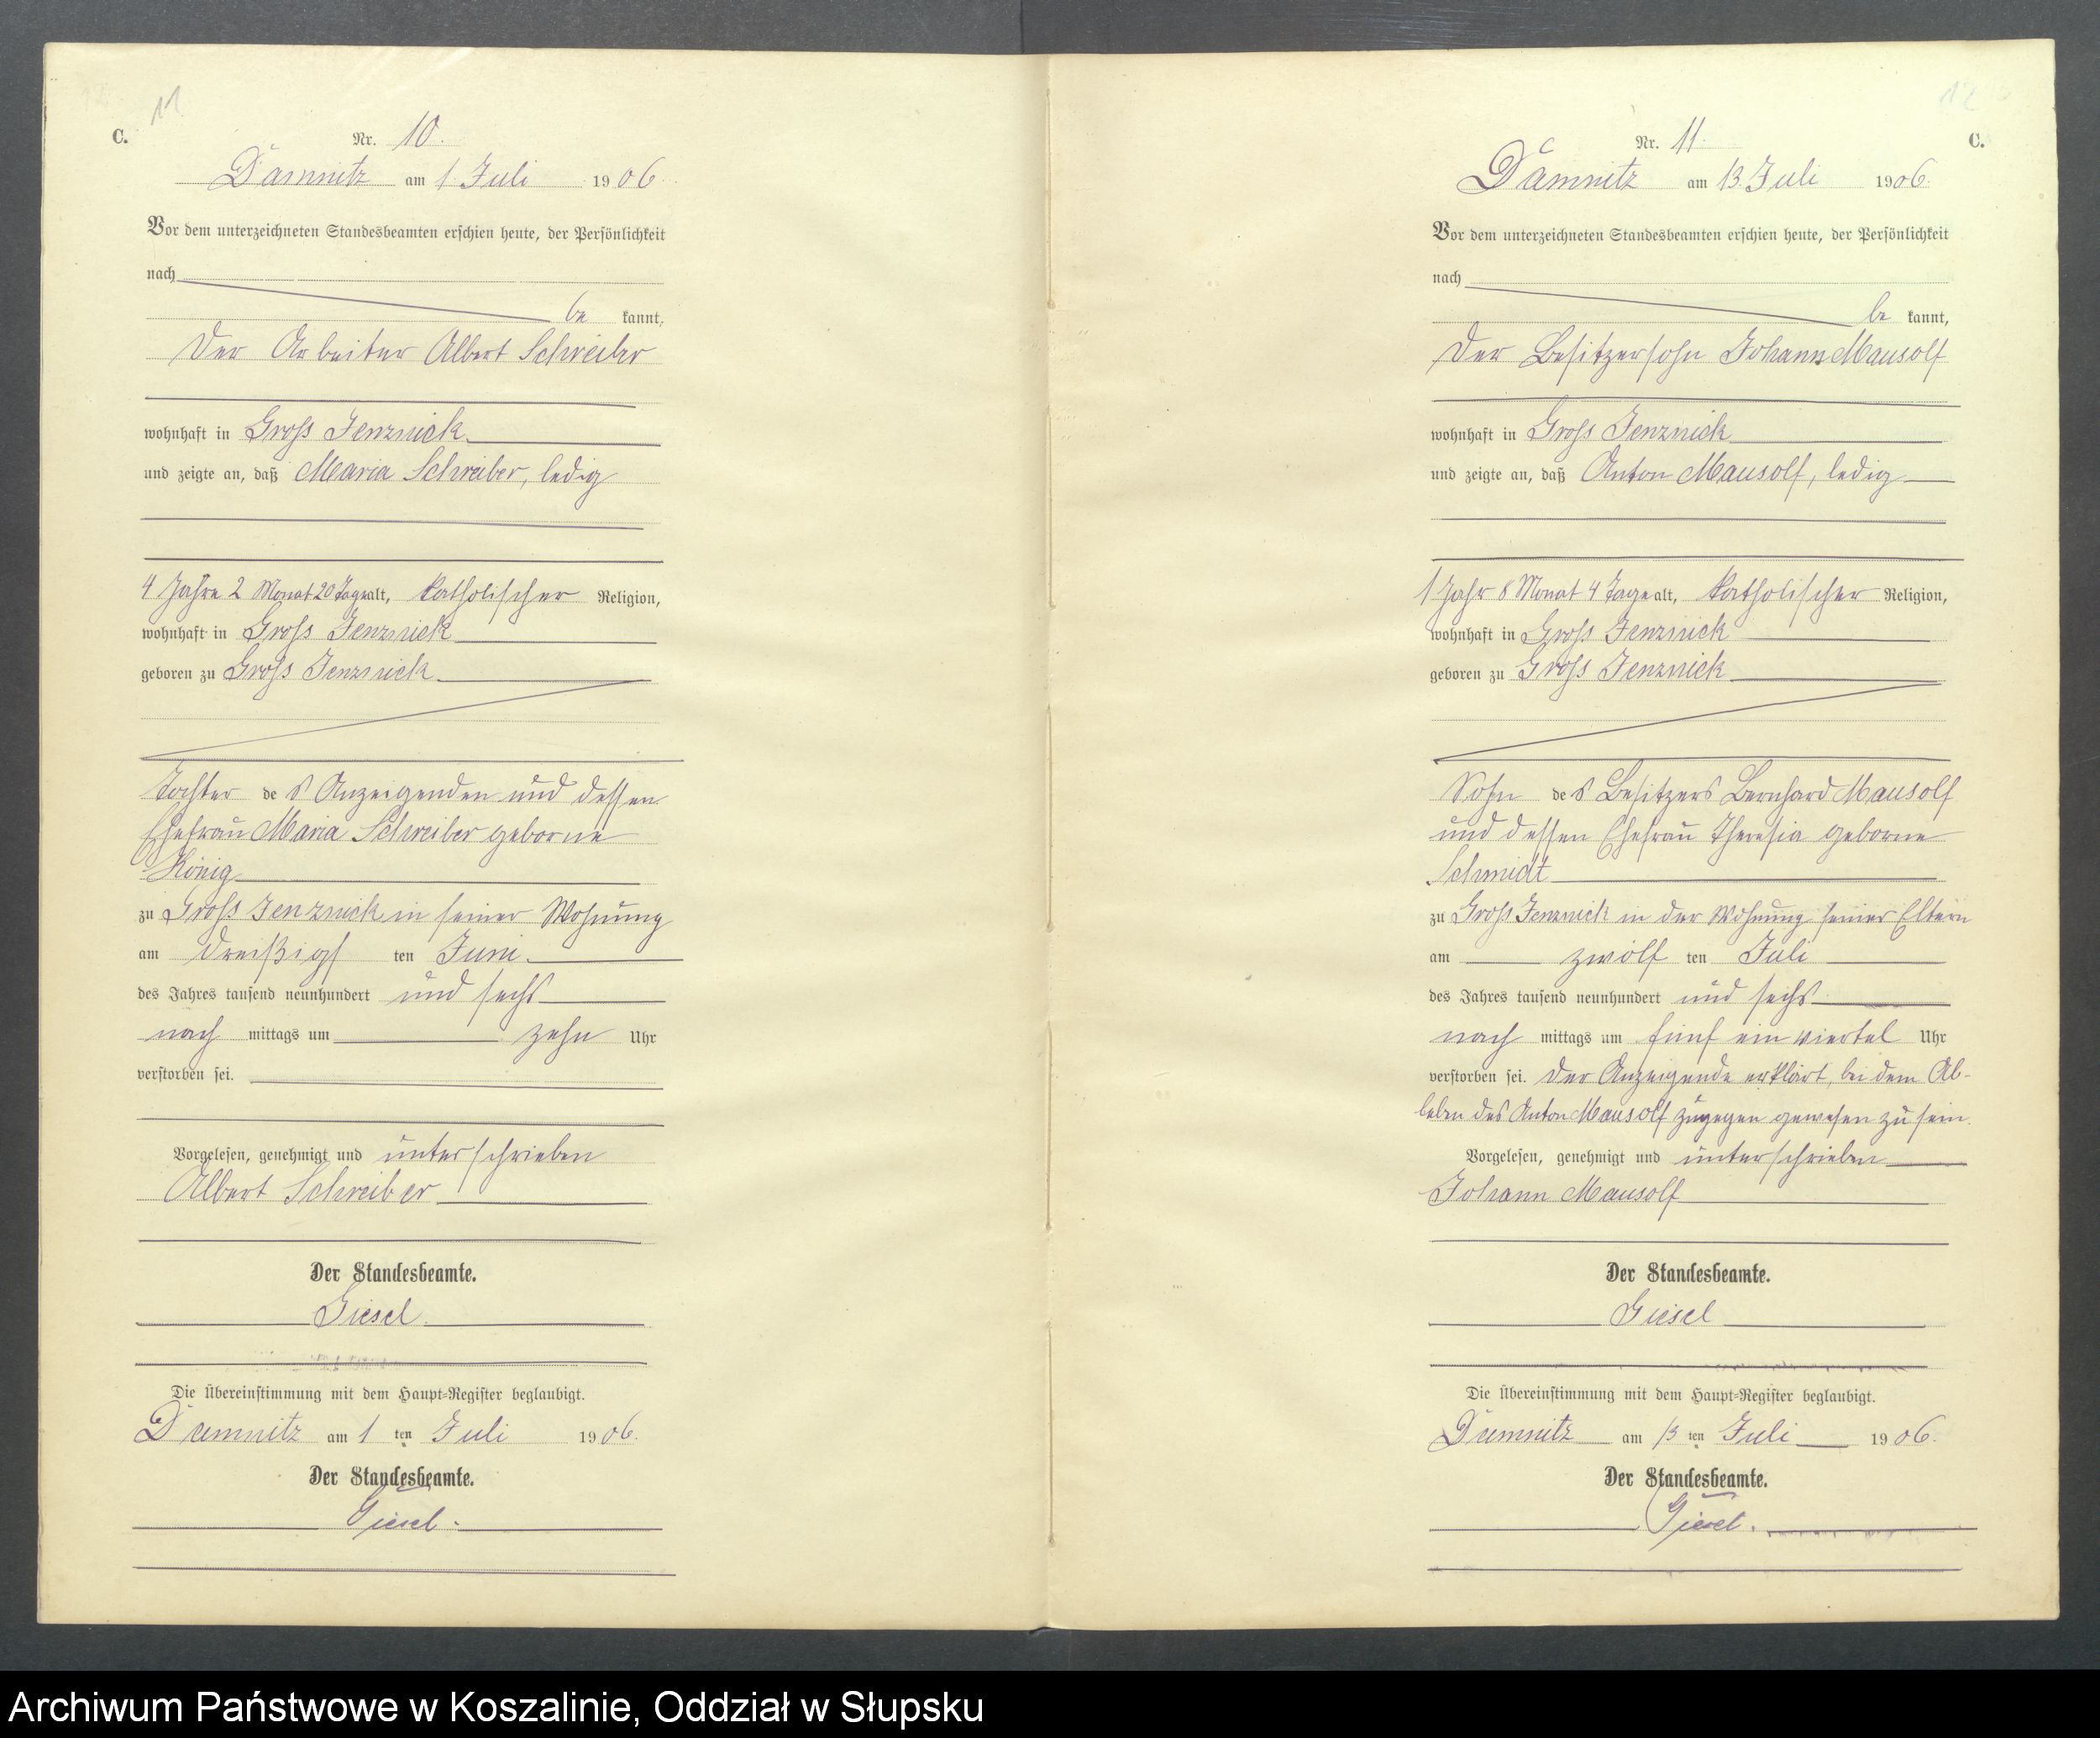 11
C.
Nr. 10.
Damnitz am 1. Juli 1906
Vor dem unterzeichneten Standesbeamten erschien heute, der Persönlichkeit
nach
be kannt,
Der Arbeiter Albert Schreiber
wohnhaft in Gross Jenznick
und zeigte an, daß Maria Schreiber, ledig
4 Jahre 2 Monat 20 Tage alt, katholischer Religion,
wohnhaft in Gross Jenznick
geboren zu Gross Jenznick
Tochter des Anzeigenden und dessen
Ehefrau Maria Schreiber geborne
König
zu Gross Jenznick in seiner Wohnung
am dreißigs ten Juni
des Jahres tausend neunhundert und sechs
nach mittags um zehn Uhr
verstorben sei.
Vorgelesen, genehmigt und unterschrieben
Albert Schreiber
Der Standesbeamte.
Giesel
Die Übereinstimmung mit dem Haupt-Register beglaubigt.
Damnitz am 1 ten Juli 1906.
Der Standesbeamte.
Giesel.
12
Nr. 11.
C.
Damnitz am 13. Juli 1906.
Vor dem unterzeichneten Standesbeamten erschien heute, der Persönlichkeit
nach
be kannt,
Der Besitzersohn Johann Mausolf
wohnhaft in Gross Jenznick
und zeigte an, daß Anton Mausolf, ledig
1 Jahr 8 Monat 4 Tage alt, katholischer Religion,
wohnhaft in Gross Jenznick
geboren zu Gross Jenznick
Sohn des Besitzers Bernhard Mausolf
und dessen Ehefrau Theresia geborne
Schmidt
zu Gross Jenznick in der Wohnung seiner Eltern
am zwölf ten Juli
des Jahres tausend neunhundert und sechs
nach mittags um fünf ein viertel Uhr
verstorben sei. Der Anzeigende erklärt, bei dem Ab-
leben des Anton Mausolf zugegen gewesen zu sein.
Vorgelesen, genehmigt und unterschrieben
Johann Mausolf
Der Standesbeamte.
Giesel
Die Übereinstimmung mit dem Haupt-Register beglaubigt.
Damnitz am 13 ten Juli 1906.
Der Standesbeamte.
Giesel.
Archiwum Państwowe w Koszalinie, Oddział w Słupsku